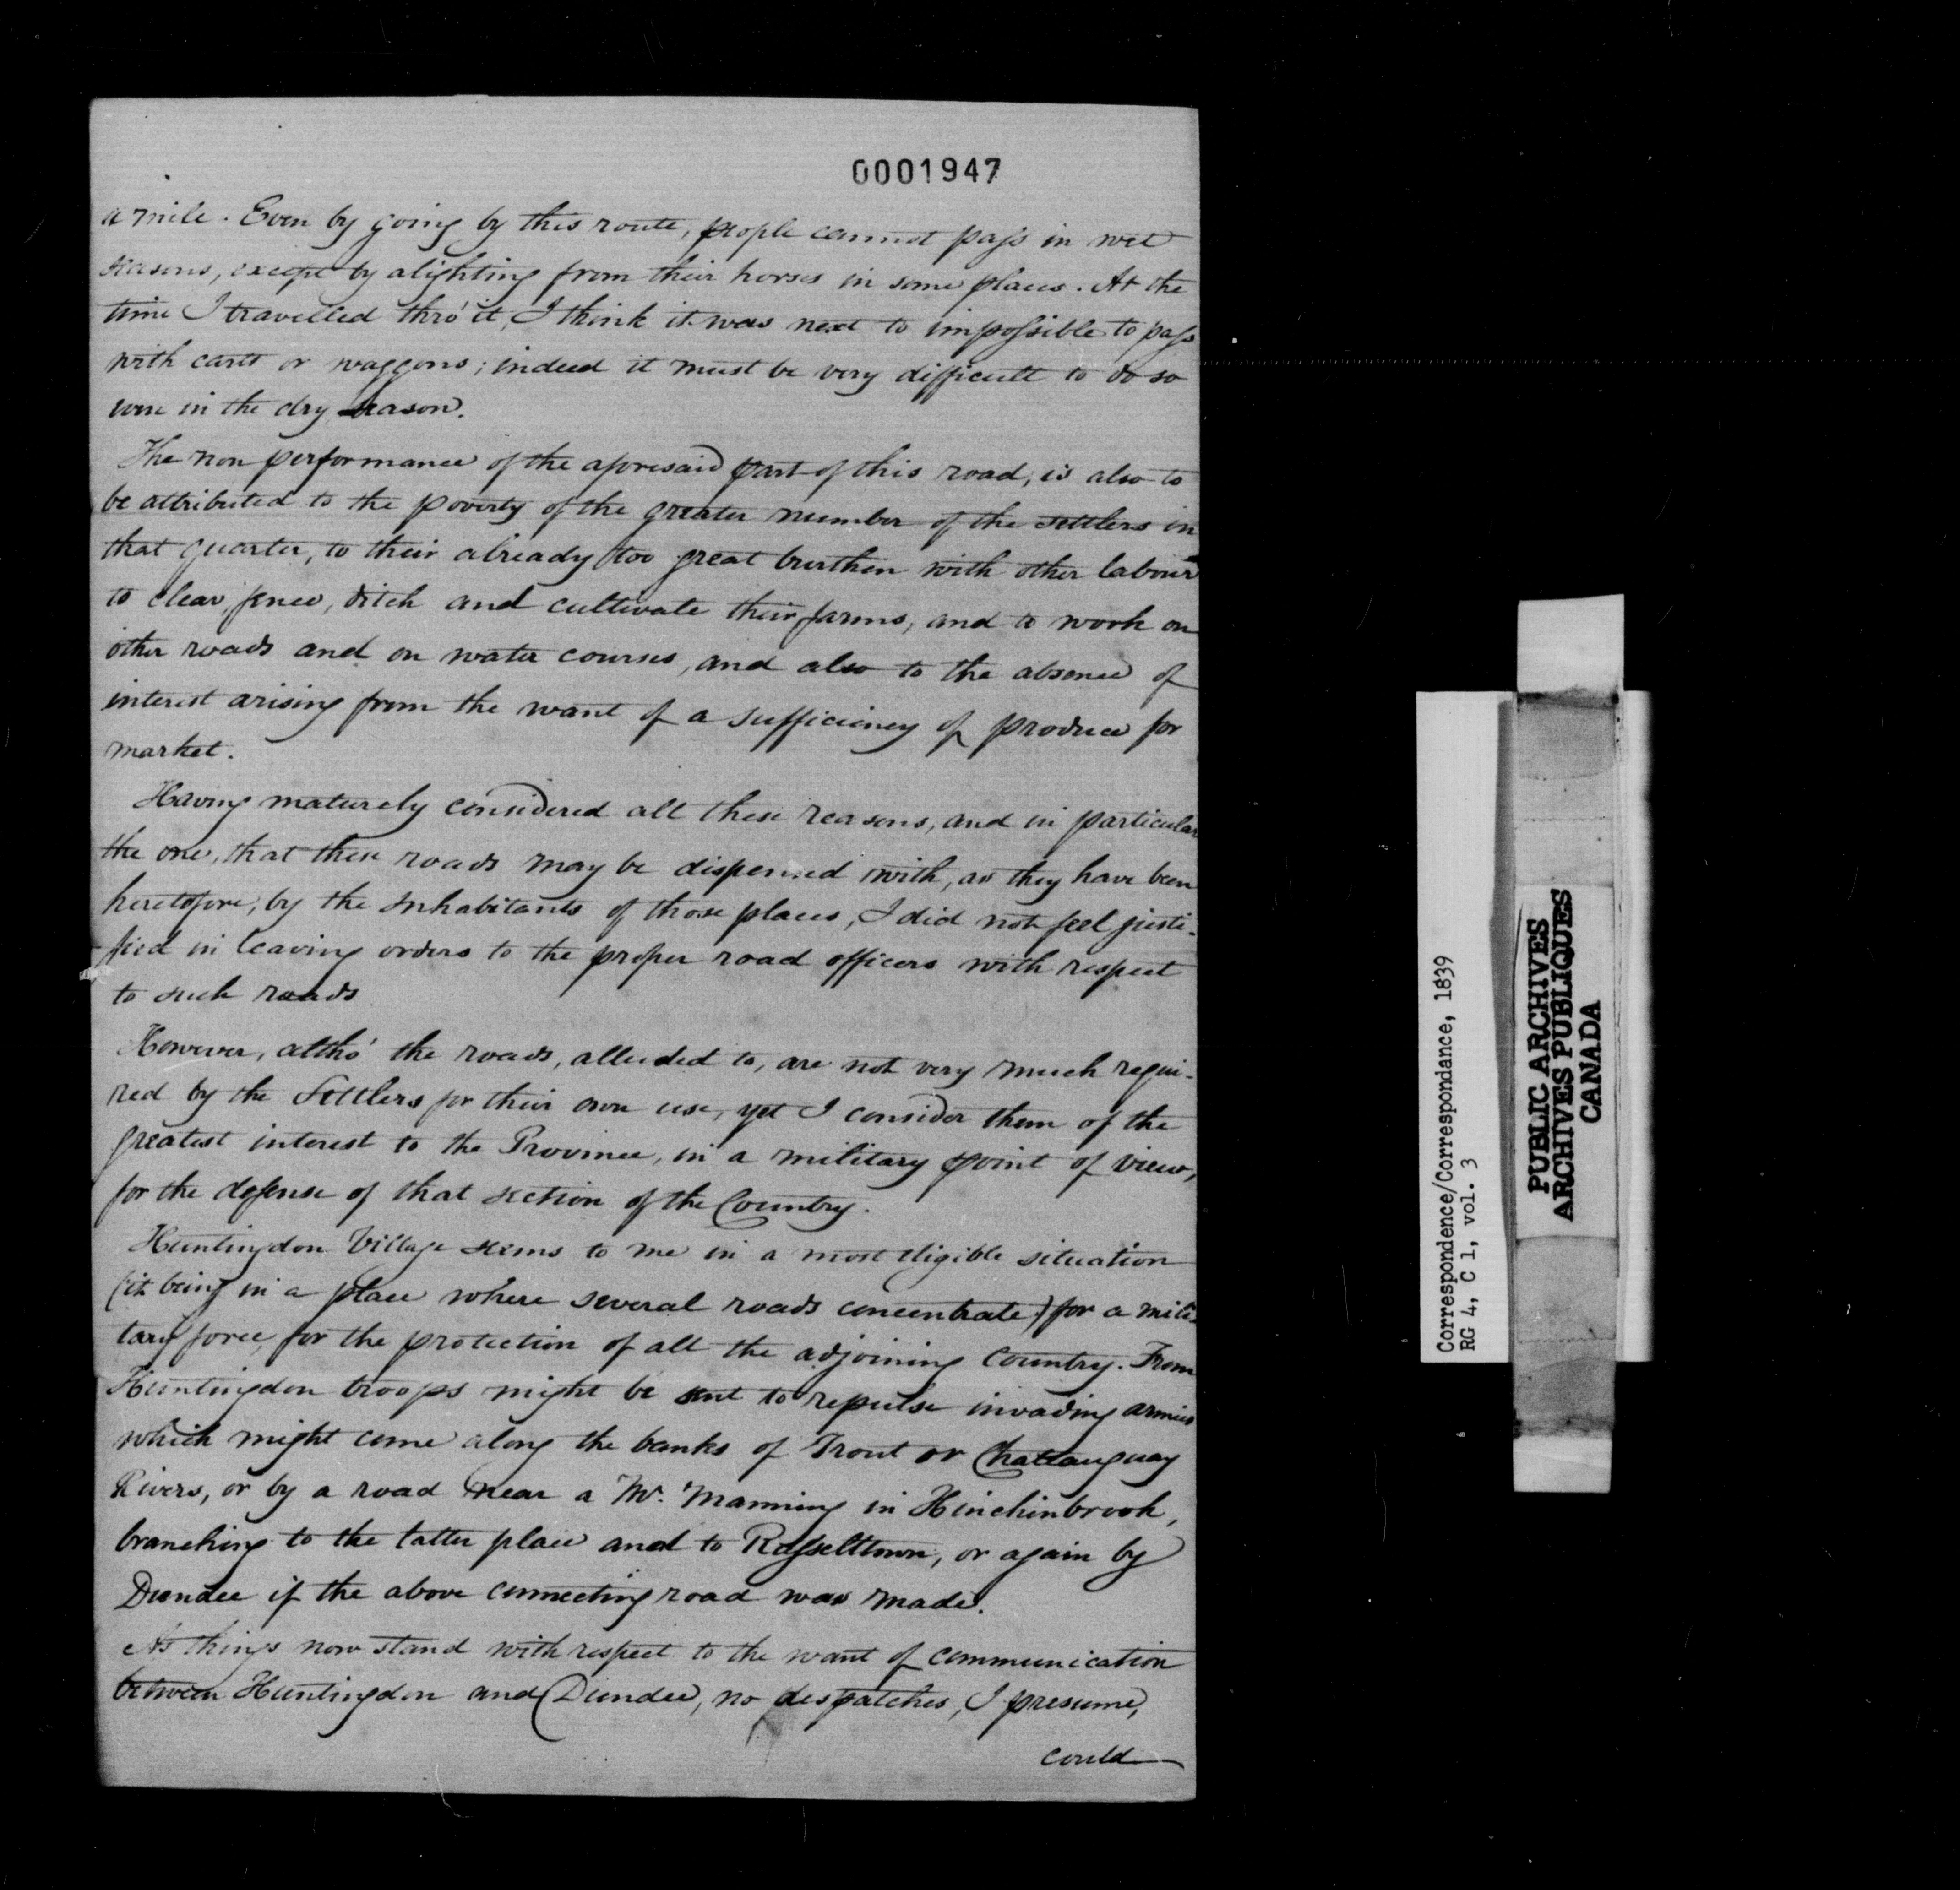 0001947
a mile. Even by going by this route, people cannot pass in wet
seasons, except by alighting from their horses in some places. At the
time I travelled thro' it, I think it was next to impossible to pass
with carts or waggons; indeed it must be very difficult to do so
even in the dry season.
The non performance of the aforesaid part of this road, is also to
be attributed to the poverty of the greater number of the settlers in
that quarter, to their already too great burthen with other labour
to clear, fence, ditch and cultivate their farms, and to work on
other roads and on water courses, and also to the absence of
interest arising from the want of a sufficiency of produce for
market.
Having maturely considered all these reasons, and in particular
the one, that these roads may be dispensed with, as they have been
heretofore, by the Inhabitants of those places, I did not feel justi-
fied in leaving orders to the proper road officers with respect
to such roads
However, altho' the roads, alluded to, are not very much requi-
red by the Settlers for their own use, yet I consider them of the
greatest interest to the Province, in a military point of view,
for the defense of that section of the Country.
Huntingdon Village seems to me in a most eligible situation
(it being in a place where several roads concentrate) for a mili-
tary force, for the protection of all the adjoining Country. From
Huntingdon troops might be sent to repulse invading armies
which might come along the banks of Trout or Chattauguay
Rivers, or by a road near a Mr. Manning in Hinchinbrook,
branching to the latter place and to Russelltown, or again by
Dundee if the above connecting road was made.
As things now stand with respect to the want of communication
between Huntingdon and Dundee, no despatches, I presume,
could
Correspondence/Correspondance, 1839
RG 4, C 1, vol. 3
PUBLIC ARCHIVES
ARCHIVES PUBLIQUES
CANADA